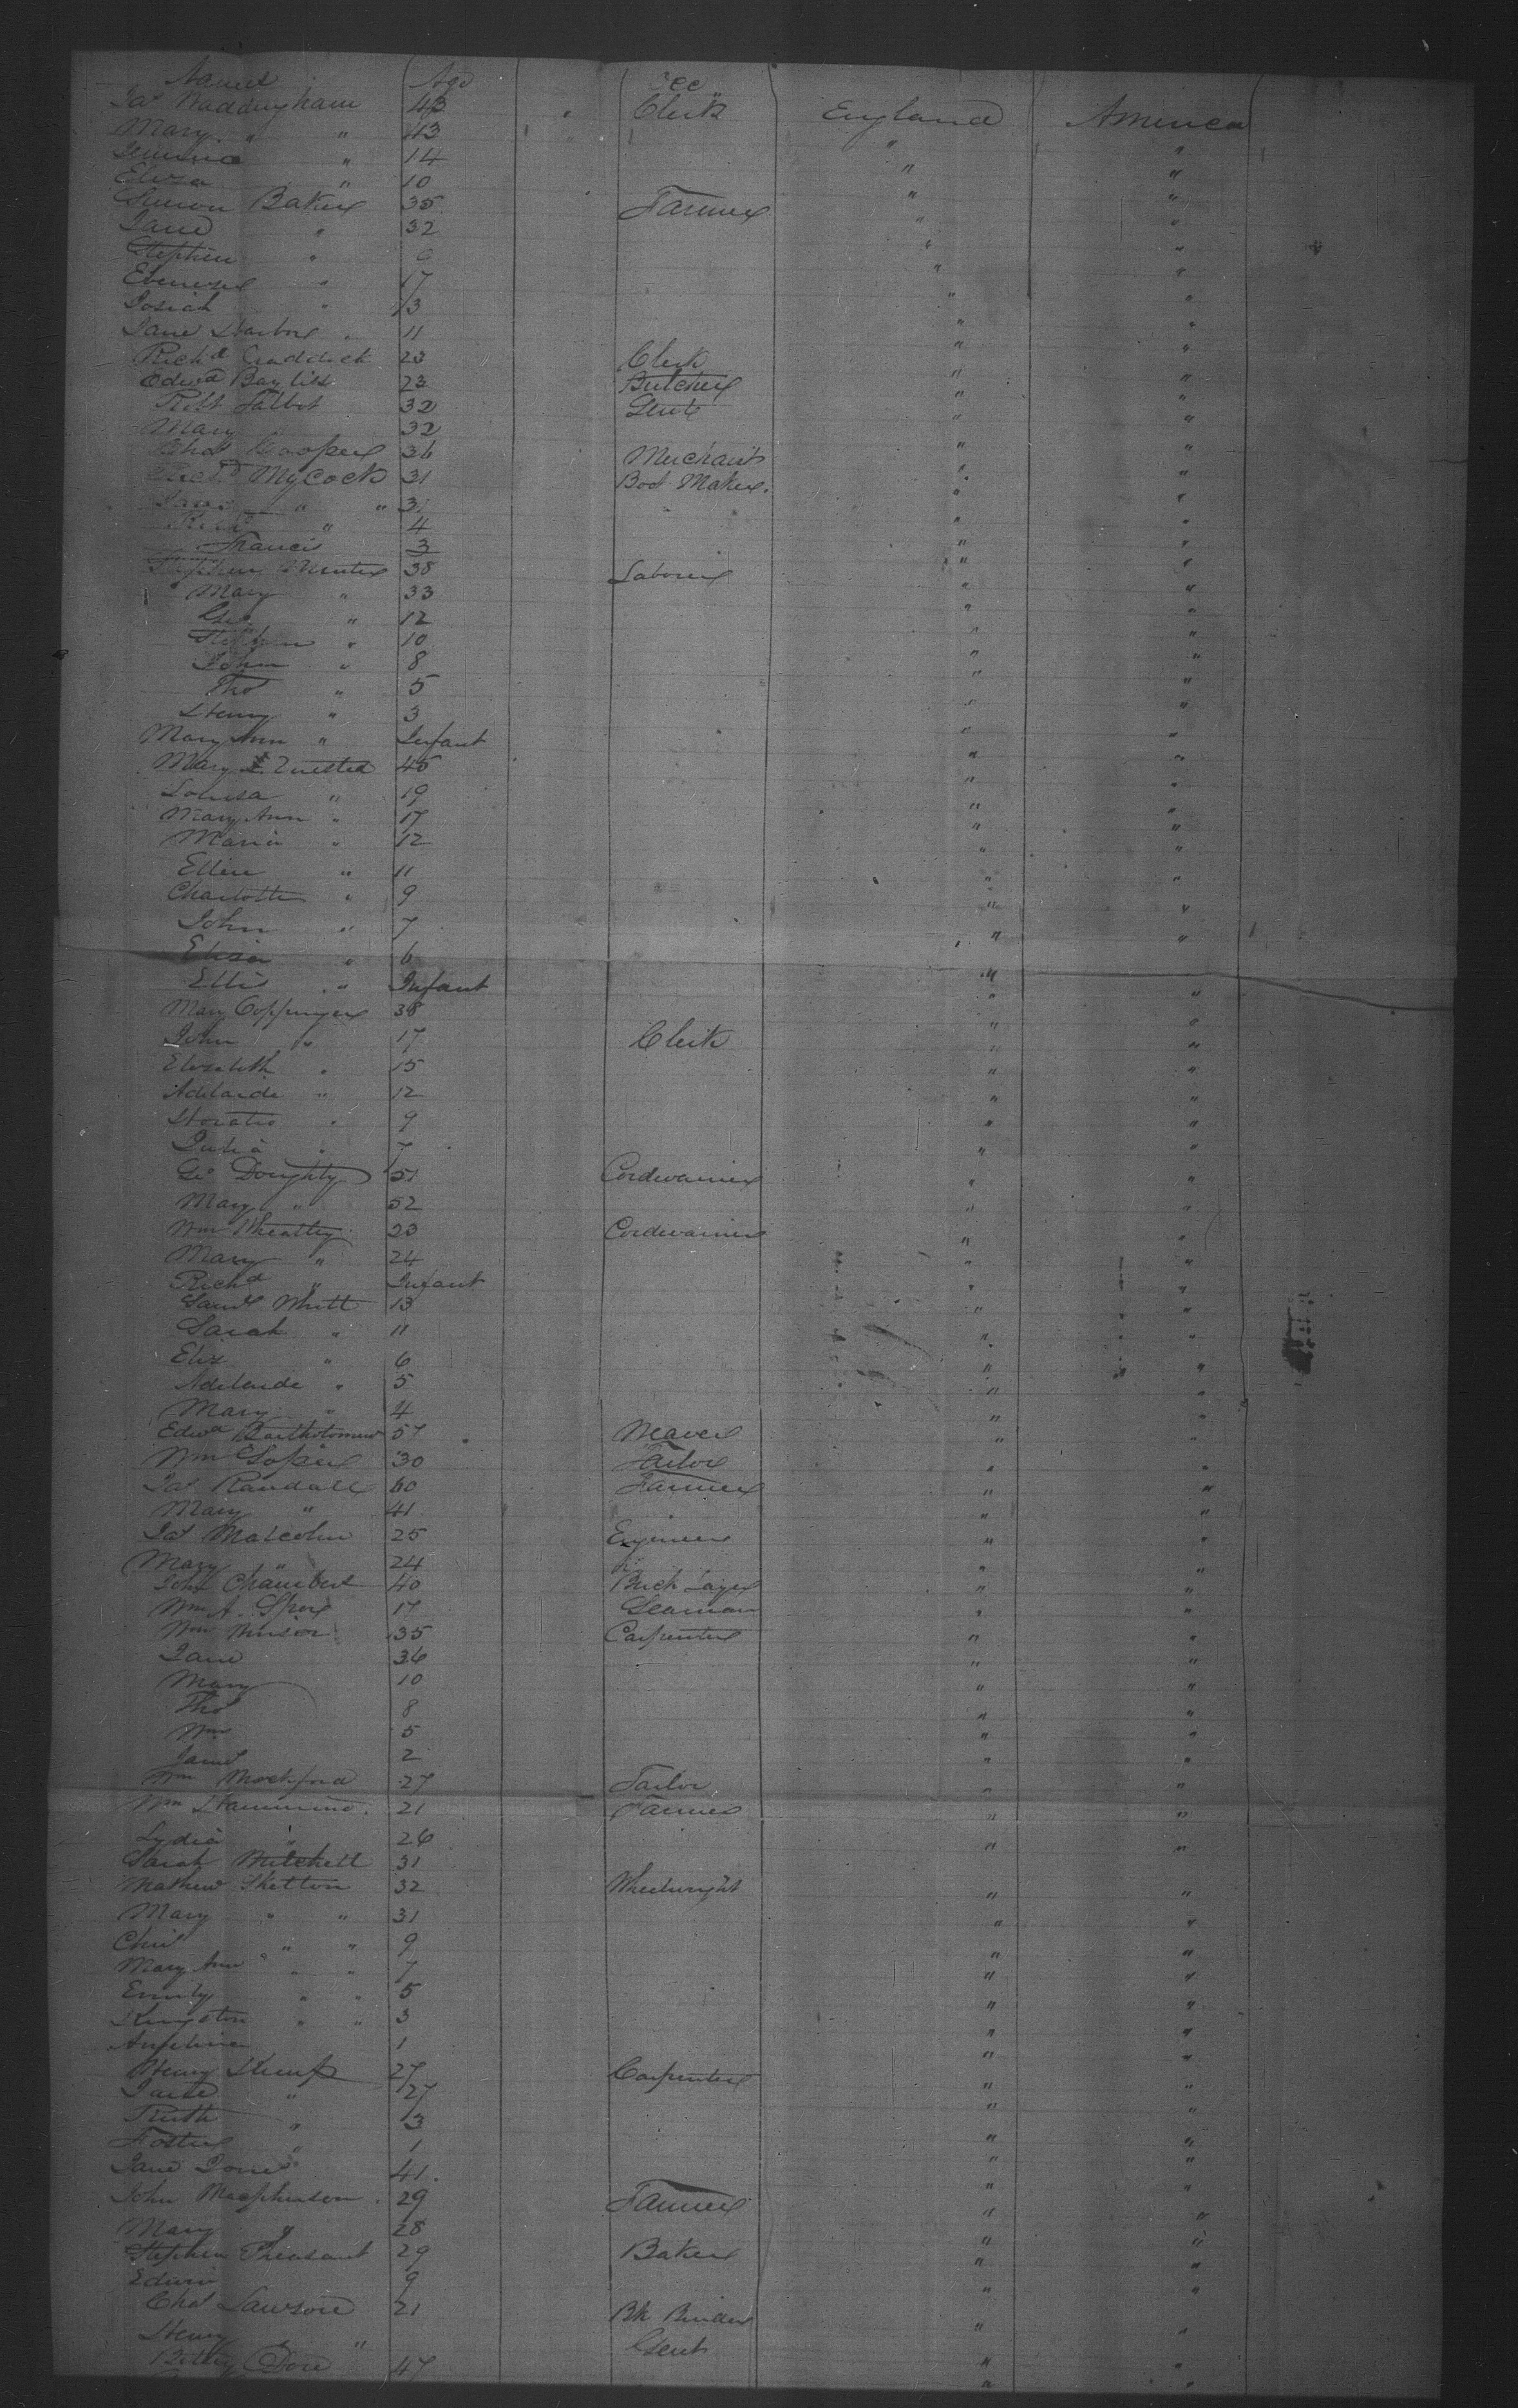 Names Age Occ
Jas Waddingham 43 Clerk England America
Mary " " 43 " "
Jemima " 14 " "
Eliza " 10 " "
Simon Baker 35 Farmer " "
Jane " 32 " "
Stephen " " "
Ebenezer " 17 " "
Josiah " 13 " "
Jane 11 " "
Richd 23 Clerk " "
Edwd Bayliss 23 Butcher " "
Robt Talbot 32 Gent " "
Mary 32 " "
Chas Cooper 36 Merchant " "
Richd Mycock 31 Boot Maker. " "
Jane " " 31 " "
Richd " 4 " "
Francis 3 " "
Stephen 38 Laborer " "
Mary " 33 " "
Geo " 12 " "
Stephen " 10 " "
John " 8 " "
Thos " 5 " "
Henry " 3 " "
Mary Ann " Infant " "
Mary 45 " "
Louisa " 19 " "
Mary Ann " 17 " "
Maria " 12 " "
Ellen " 11 " "
Charlotte " 9 " "
John " 7 " "
Eliza " 6 " "
Ellis " Infant " "
Mary Coppinger 38 " "
John " 17 Clerk " "
Elizabeth " 15 " "
Adelaide " 12 " "
Horatio " 9 " "
Julia " 7 " "
Geo Doughty 51 Cordwainer " "
Mary " 52 " "
Wm Wheatley 23 Cordwainer " "
Mary " 24 " "
Richd " Infant " "
Saml Whitt 13 " "
Sarah " 11 " "
Eliz " 6 " "
Adelaide " 5 " "
Mary " 4 " "
Edwd Bartholomew 57 Weaver " "
Wm Soper 30 Tailor " "
Jas Randall 60 Farmer " "
Mary " 41 " "
Jas Malcolm 25 Engineer " "
Mary " 24 " "
John Chambers 40 Brick Layer " "
Wm A. 17 Seaman " "
Wm Minson 35 Carpenter " "
Jane 36 " "
Mary 10 " "
Thos 8 " "
Wm 5 " "
James 2 " "
Wm Mockford 27 Tailor " "
Wm Hammond 21 Farmer " "
Lydia " 26 " "
Sarah Mitchell 31
Mathew Skelton 32 Wheelwright " "
Mary " " 31 " "
" " 9 " "
Mary Ann " " 7 " "
Emily " " 5 " "
Kingston " " 3 " "
1 " "
Henry 27 Carpenter " "
Jane " 27 " "
Ruth " 3 " "
Foster " 1 " "
Jane 41 " "
John Macpherson 29 Farmer " "
Mary " 28 " "
Stephen Pheasant 29 Baker " "
Edwin 9 " "
Chas Lawson 21 Bk Binder " "
Henry " Gent " "
Dore 47 " "